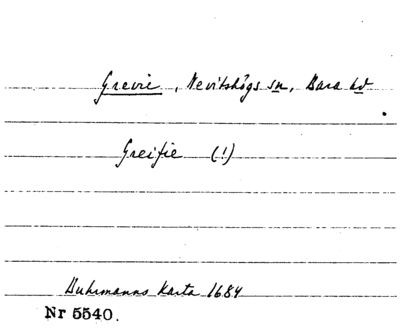 Grevie, Nevitshögs sn, Bara hd
Greifie (!)
Buhrmanns Karta 1684
Nr 5540.